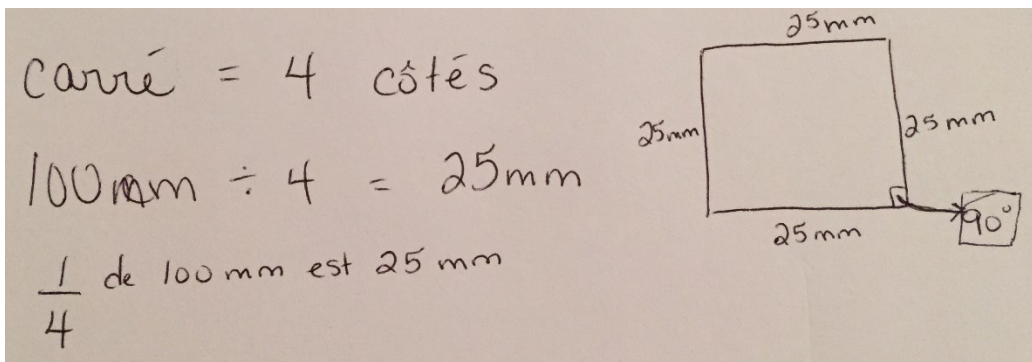 carré = 4 côtés
100mm ÷ 4 = 25mm
1/4 de 100 mm est 25 mm
25mm
25mm
25mm
25mm
90°